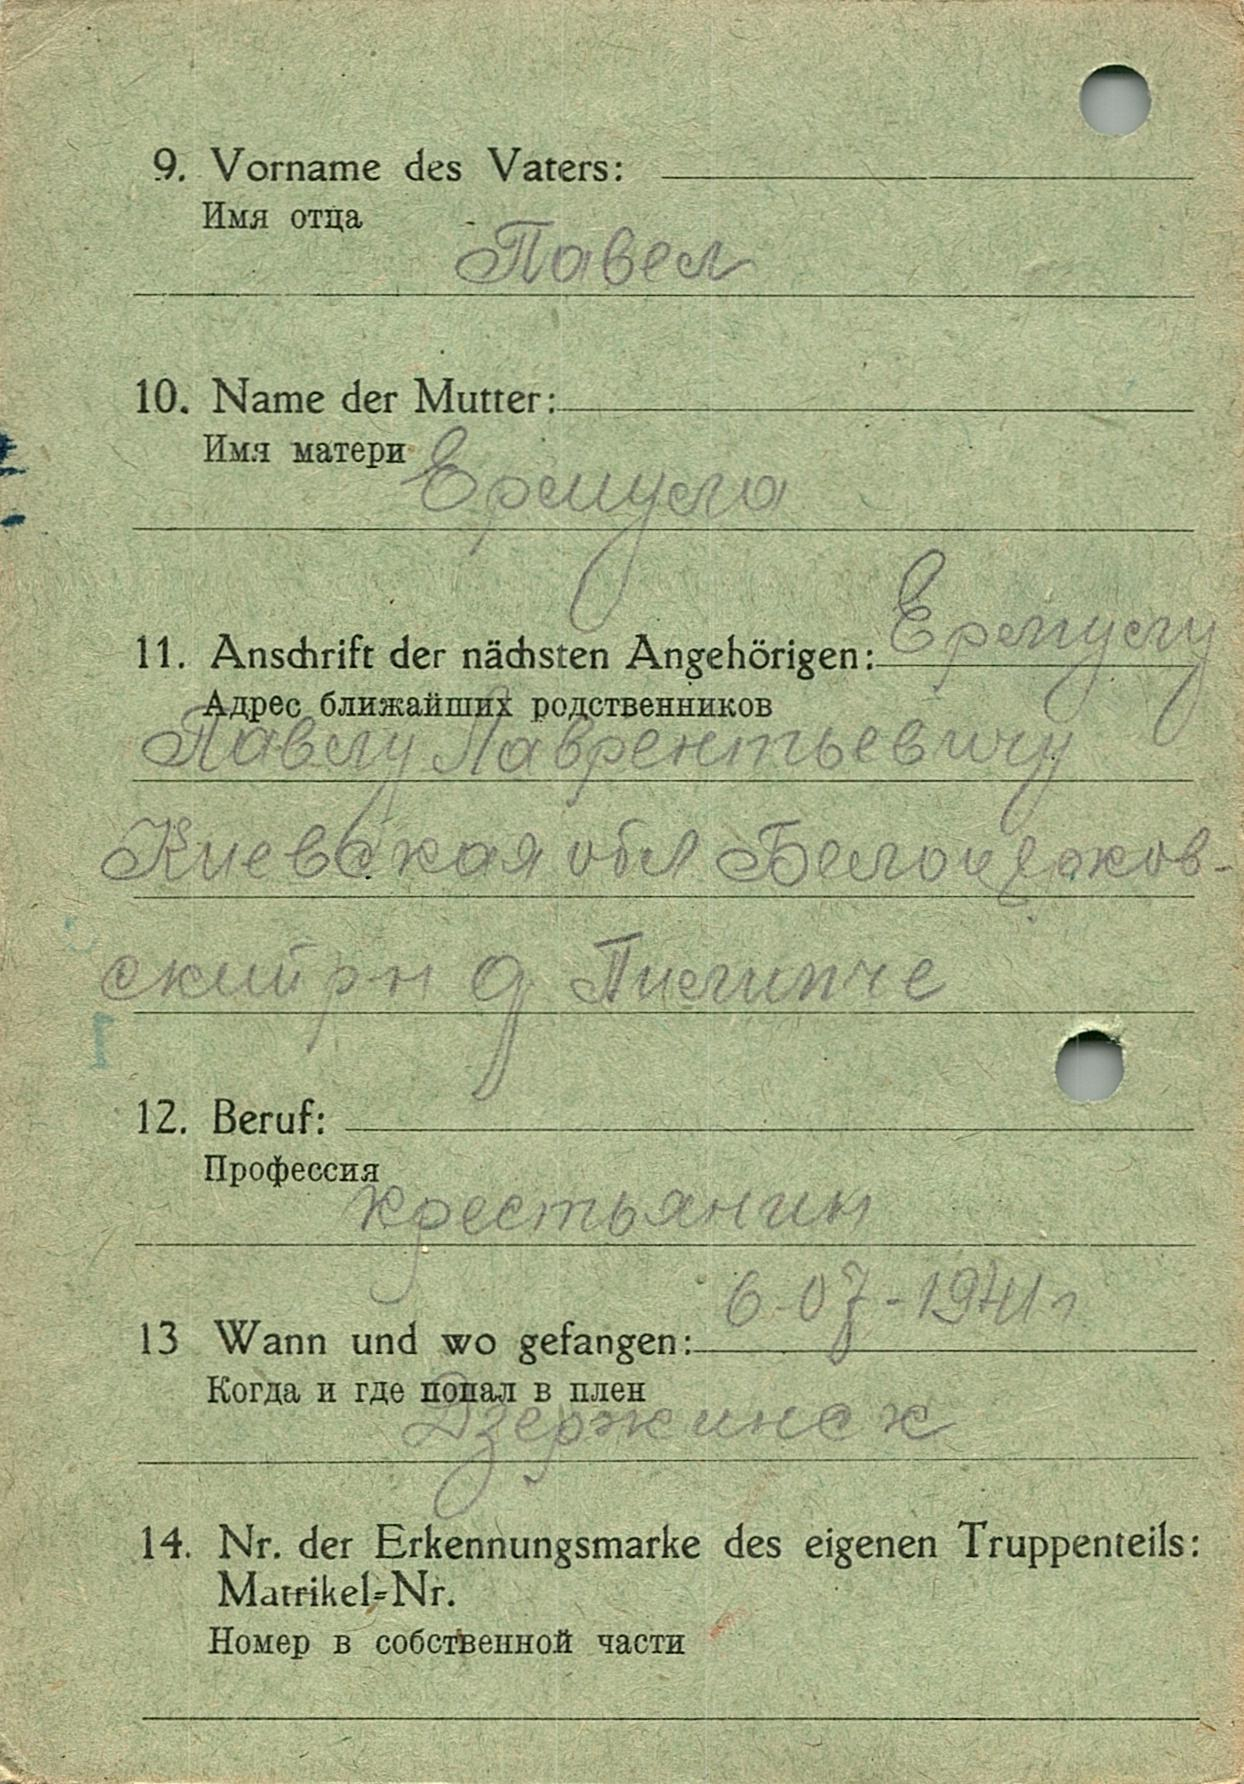 9. Vorname des Vaters:
Имя отца
Павел
10. Name der Mutter:
Имя матери
11. Anschrift der nächsten Angehörigen:
Адрес ближайших родственников
Павлу Лаврентьевичу
Киевская обл Белоцерков-
ский р-н д
12. Beruf:
Профессия
крестьянин
6-07-1941 г
13 Wann und wo gefangen:
Когда и где попал в плен
Дзержинск
14. Nr. der Erkennungsmarke des eigenen Truppenteils:
Matrikel=Nr.
Номер в собственной части